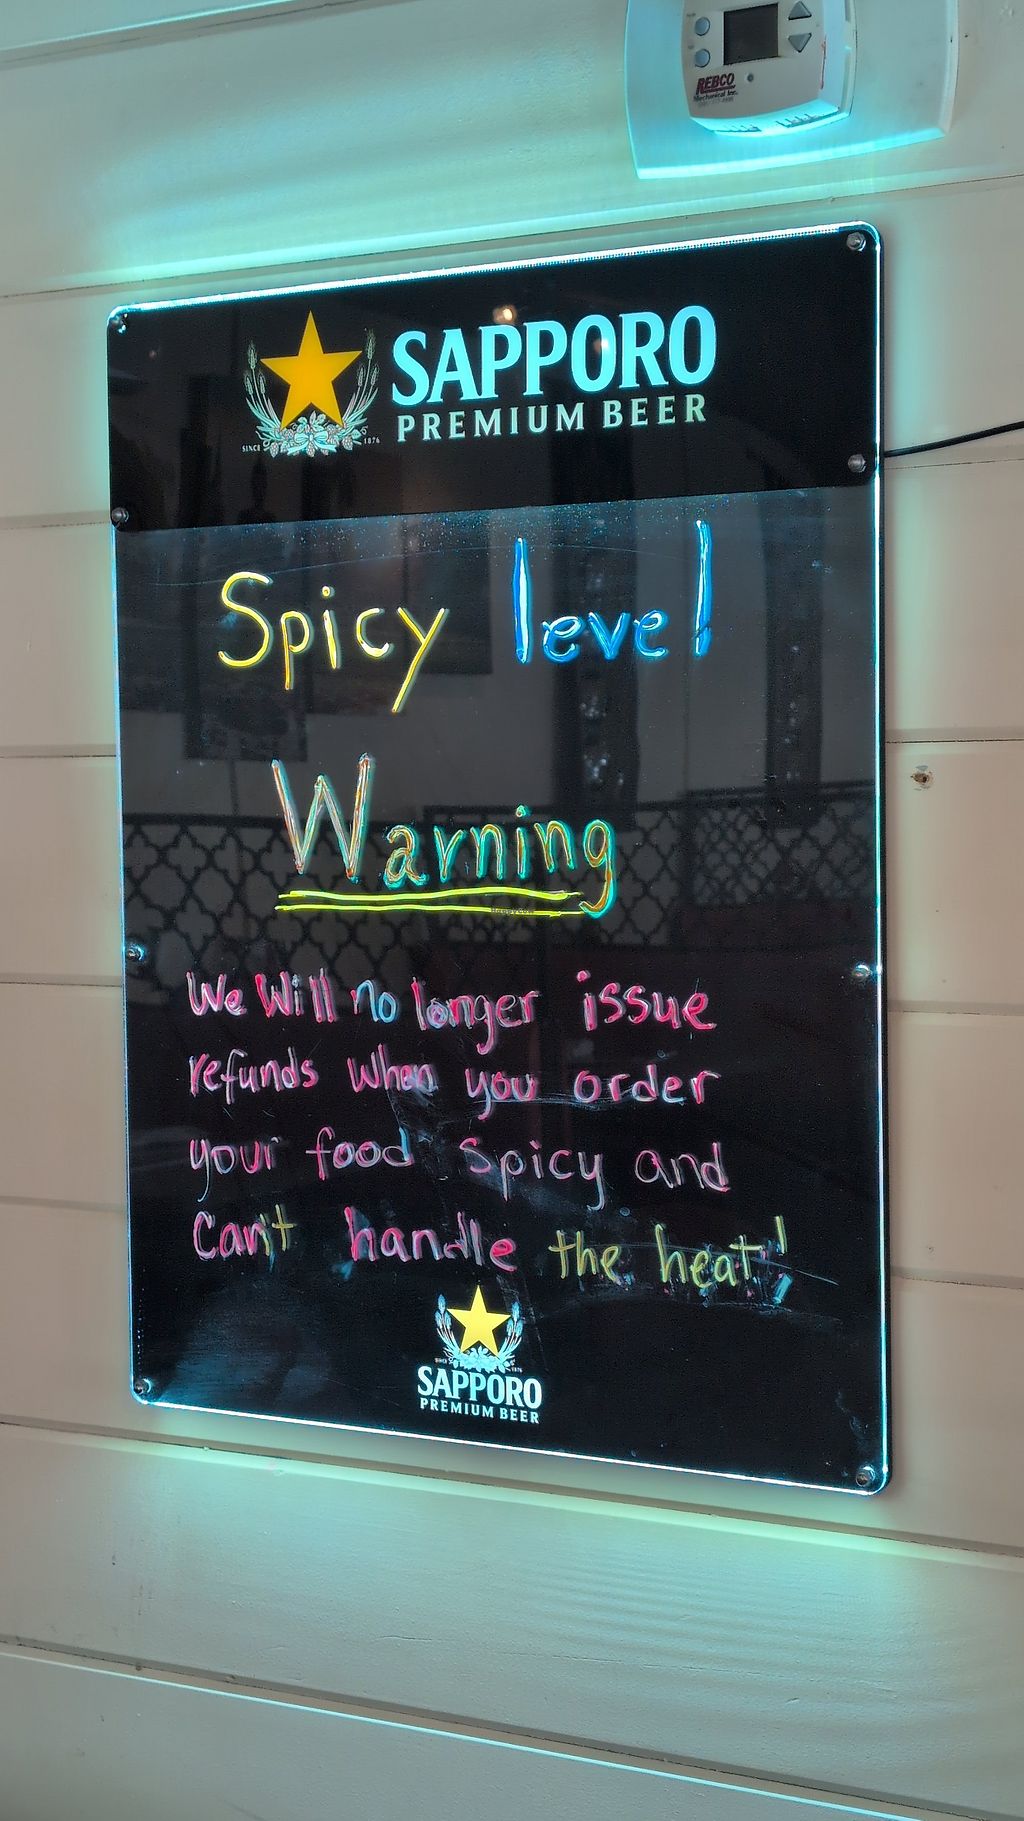 REBCO
Mechanical Inc.
SAPPORO
PREMIUM BEER
SINCE 1876
Spicy level
Warning
HappyCow
We will no longer issue
refunds when you order
your food spicy and
Can't handle the heat!
SINCE 1876
SAPPORO
PREMIUM BEER